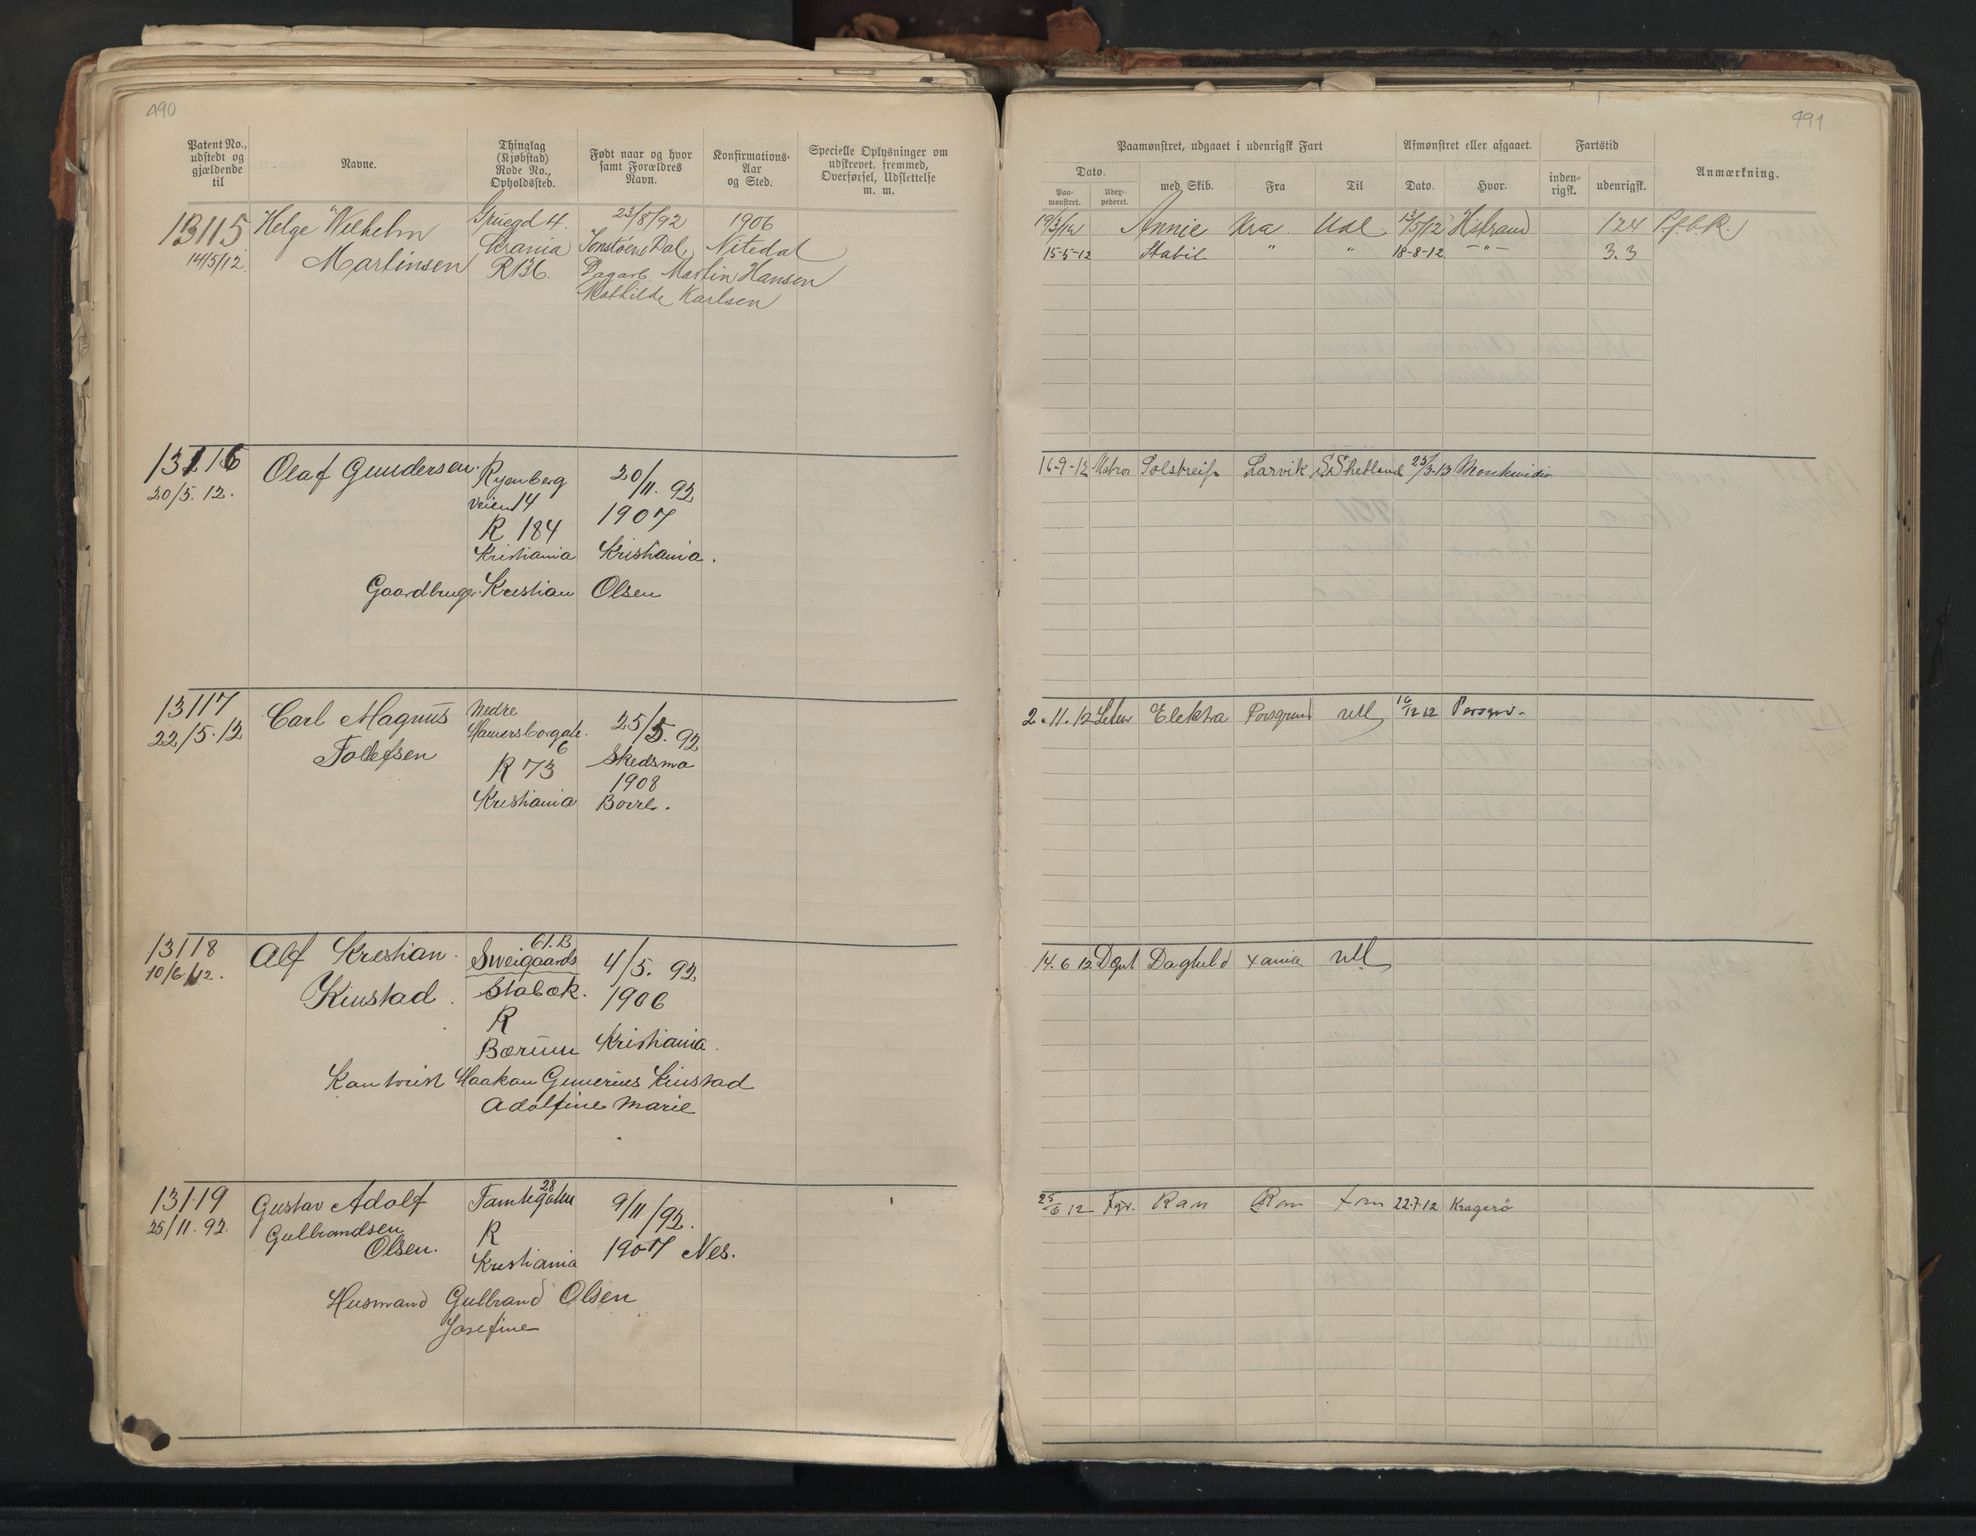 490
Patent No., udstedt og gjældende til
Navne.
Thinglag (Kjøbstad) Rode No., Opholdssted.
Født naar og hvor samt Forældres Navn.
Konfirmations- Aar og Sted.
Specielle Oplysninger om udskrevet, fremmed, Overførsel, Udslettelse m. m.
13115 Helge Wilhelm 23/8/92 1906
14/5/12 Martinsen Nitedal
R 136. Dagarb. Martin Hansen
Mathilde Karlsen
13116 Olaf Gundersen Ryenberg 20/11. 92
20/5. 12. veien 14 1907
R 184
Kristiania Kristiania.
Gaardbruger Kristian Olsen
13117 Carl Magnus Nedre 25/5. 92
22/5. 12 Hamersborgate. 6 Skedsmo
R 73 1908
Kristiania
13118 Alf Kristian 61. B
10/6 12. Sweigaards 4/5. 92
Kinstad Stabæk. 1906
R
Bærum Kristiania.
Haakon Kinstad
Adolfine Marie
13119 Gustav Adolf 28 9/11/92.
25/11. 92. Gulbrandsen R
Olsen. Kristiania 1907 Nes.
Husmand Gulbrand Olsen
Josefine
491
Paamønstret, udgaaet i udenrigsk Fart
Afmønstret eller afgaaet.
Fartstid
Anmærkning.
Dato.
Paa- mønstret.
Udex- pederet.
med Skib.
Fra
Til
Dato.
Hvor.
inden- rigsk.
udenrigsk.
Annie Kra 13/5/12 124
15-5-12 Stabil " " 18-8-12. -"- 3.3
16-9-12 Larvik S Shetland 25/3-13
2.11.12 Elektra Porsgrund Utl 16/12 12 Porsgr.
14.6 12 Daghild Xania Utl
25/6 12 Ran 22.7.12 Kragerø